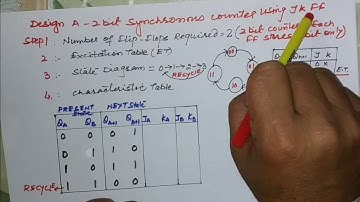 Design A - 2 bit Synchronous Counter Using JK FF
Step 1 : Number of flip-flops Required = 2 (2 bit counter Each
FF stores 1 bit only)
2 : Excitation Table (ET)
3 : State Diagram = 0→1→2→3
RECYCLE
4 : characteristic Table
00
01
10
11
Qn Qn+1 J K
0 X
E.T.
PRESENT State NEXT State
QA QB QA+1 QB+1 JA KA JB KB
0 0 0 1
0 1 1 0
1 0 1 1
RECYCLE 1 1 0 0